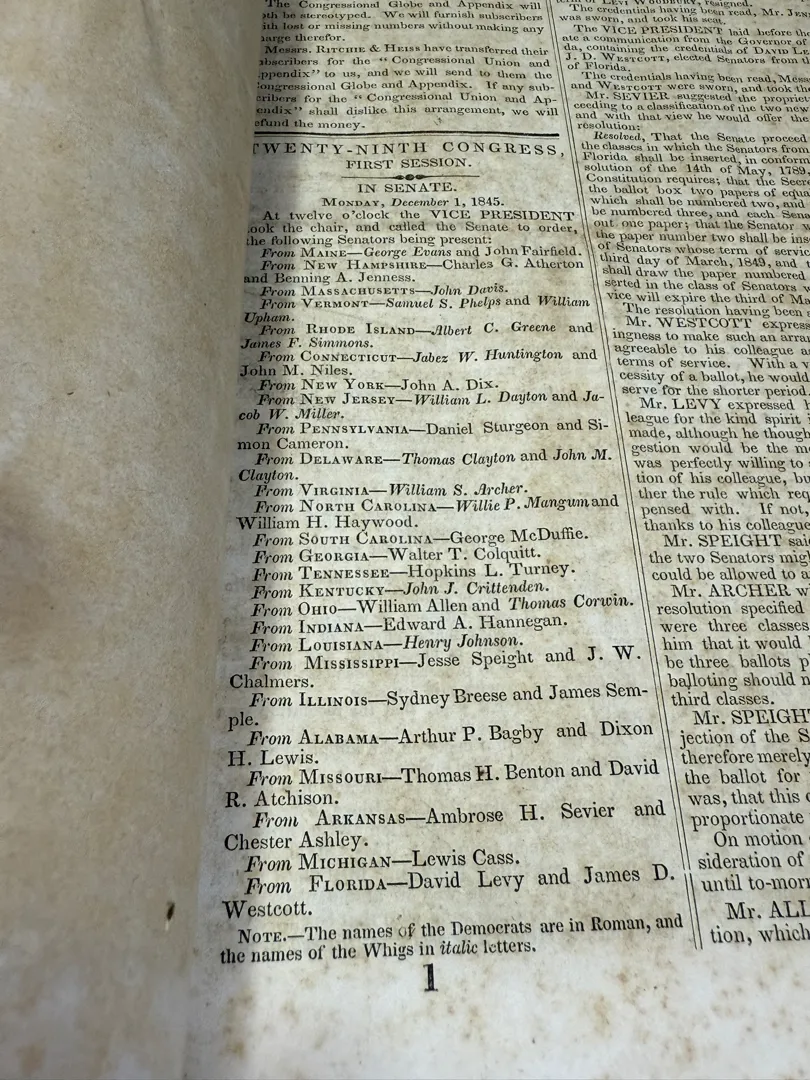 The Congressional Globe and Appendix will
be stereotyped. We will furnish subscribers
lost or missing numbers without making any
therefor.
Messrs. RITCHIE & HEISS have transferred their
for the "Congressional Union and
ppendix" to us, and we will send to them the
ongressional Globe and Appendix. If any sub-
cribers for the "Congressional Union and Ap-
endix" shall dislike this arrangement, we will
efund the money.
TWENTY-NINTH CONGRESS,
FIRST SESSION.
IN SENATE.
MONDAY, December 1, 1845.
At twelve o'clock the VICE PRESIDENT
ook the chair, and called the Senate to order,
the following Senators being present:
From MAINE—George Evans and John Fairfield.
From NEW HAMPSHIRE—Charles G. Atherton
and Benning A. Jenness.
From MASSACHUSETTS—John Davis.
From VERMONT—Samuel S. Phelps and William
Upham.
From RHODE ISLAND—Albert C. Greene and
James F. Simmons.
From CONNECTICUT—Jabez W. Huntington and
John M. Niles.
From NEW YORK—John A. Dix.
From NEW JERSEY—William L. Dayton and Ja-
cob W. Miller.
From PENNSYLVANIA—Daniel Sturgeon and Si-
mon Cameron.
From DELAWARE—Thomas Clayton and John M.
Clayton.
From VIRGINIA—William S. Archer.
From NORTH CAROLINA—Willie P. Mangum and
William H. Haywood.
From SOUTH CAROLINA—George McDuffie.
From GEORGIA—Walter T. Colquitt.
From TENNESSEE—Hopkins L. Turney.
From KENTUCKY—John J. Crittenden.
From OHIO—William Allen and Thomas Corwin.
From INDIANA—Edward A. Hannegan.
From LOUISIANA—Henry Johnson.
From MISSISSIPPI—Jesse Speight and J. W.
Chalmers.
From ILLINOIS—Sydney Breese and James Sem-
ple.
From ALABAMA—Arthur P. Bagby and Dixon
H. Lewis.
From MISSOURI—Thomas H. Benton and David
R. Atchison.
From ARKANSAS—Ambrose H. Sevier and
Chester Ashley.
From MICHIGAN—Lewis Cass.
From FLORIDA—David Levy and James D.
Westcott.
NOTE.—The names of the Democrats are in Roman, and
the names of the Whigs in italic letters.
1
of LEVI WOODBURY, resigned.
The credentials having been read, Mr. JEN
was sworn, and took his seat.
The VICE PRESIDENT laid before the
ate a communication from the Governor of
da, containing the credentials of DAVID LE
J. D. WESTCOTT, elected Senators from t
of Florida.
The credentials having been read, Mess
and WESTCOTT were sworn, and took the
Mr. SEVIER suggested the propriet
ceeding to a classification of the two new
and with that view he would offer the
resolution:
Resolved, That the Senate proceed
the classes in which the Senators from
Florida shall be inserted, in conform
solution of the 14th of May, 1789,
Constitution requires; that the Secr
the ballot box two papers of equa
which shall be numbered two, and
be numbered three, and each Sena
out one paper; that the Senator w
the paper number two shall be ins
of Senators whose term of servic
third day of March, 1849, and t
shall draw the paper numbered
serted in the class of Senators w
vice will expire the third of Ma
The resolution having been
Mr. WESTCOTT express
ingness to make such an arra
agreeable to his colleague a
terms of service. With a v
cessity of a ballot, he would
serve for the shorter period.
Mr. LEVY expressed h
league for the kind spirit i
made, although he though
gestion would be the m
was perfectly willing to
tion of his colleague, bu
ther the rule which req
pensed with. If not,
thanks to his colleague
Mr. SPEIGHT said
the two Senators migh
could be allowed to a
Mr. ARCHER w
resolution specified
were three classes
him that it would
be three ballots p
balloting should n
third classes.
Mr. SPEIGHT
jection of the S
therefore merely
the ballot for
was, that this
proportionate
On motion
sideration of
until to-mor
Mr. ALL
tion, which